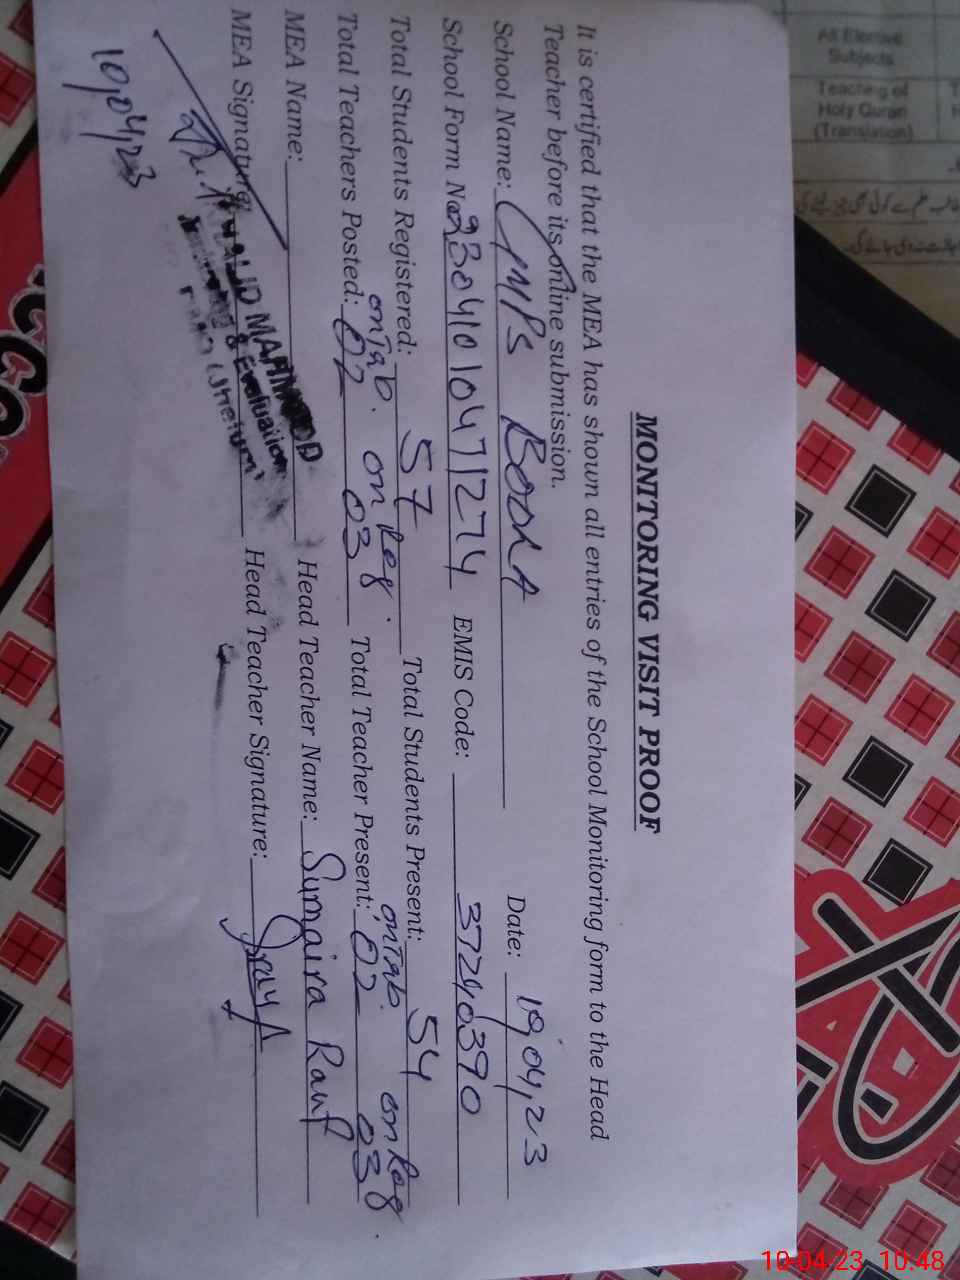 MONITORING VISIT PROOF
It is certified that the MEA has shown all entries of the School Monitoring form to the Head
Teacher before its online submission.
School Name: GMPS Boora Date: 10,04,23
School Form No: 23041010471274 EMIS Code: 37240390
Total Students Registered: 57 Total Students Present: 54
on Tab. on Reg. on Tab. on Reg.
Total Teachers Posted: 02 03 Total Teacher Present: 02 03
MEA Name: Head Teacher Name: Sumaira Rauf
MEA Signature Head Teacher Signature:
MAHMOOD
& Evaluation
10,04,23
All Elective
Subjects
Teaching of
Holy Quran
(Translation)
10-04-23 10:48